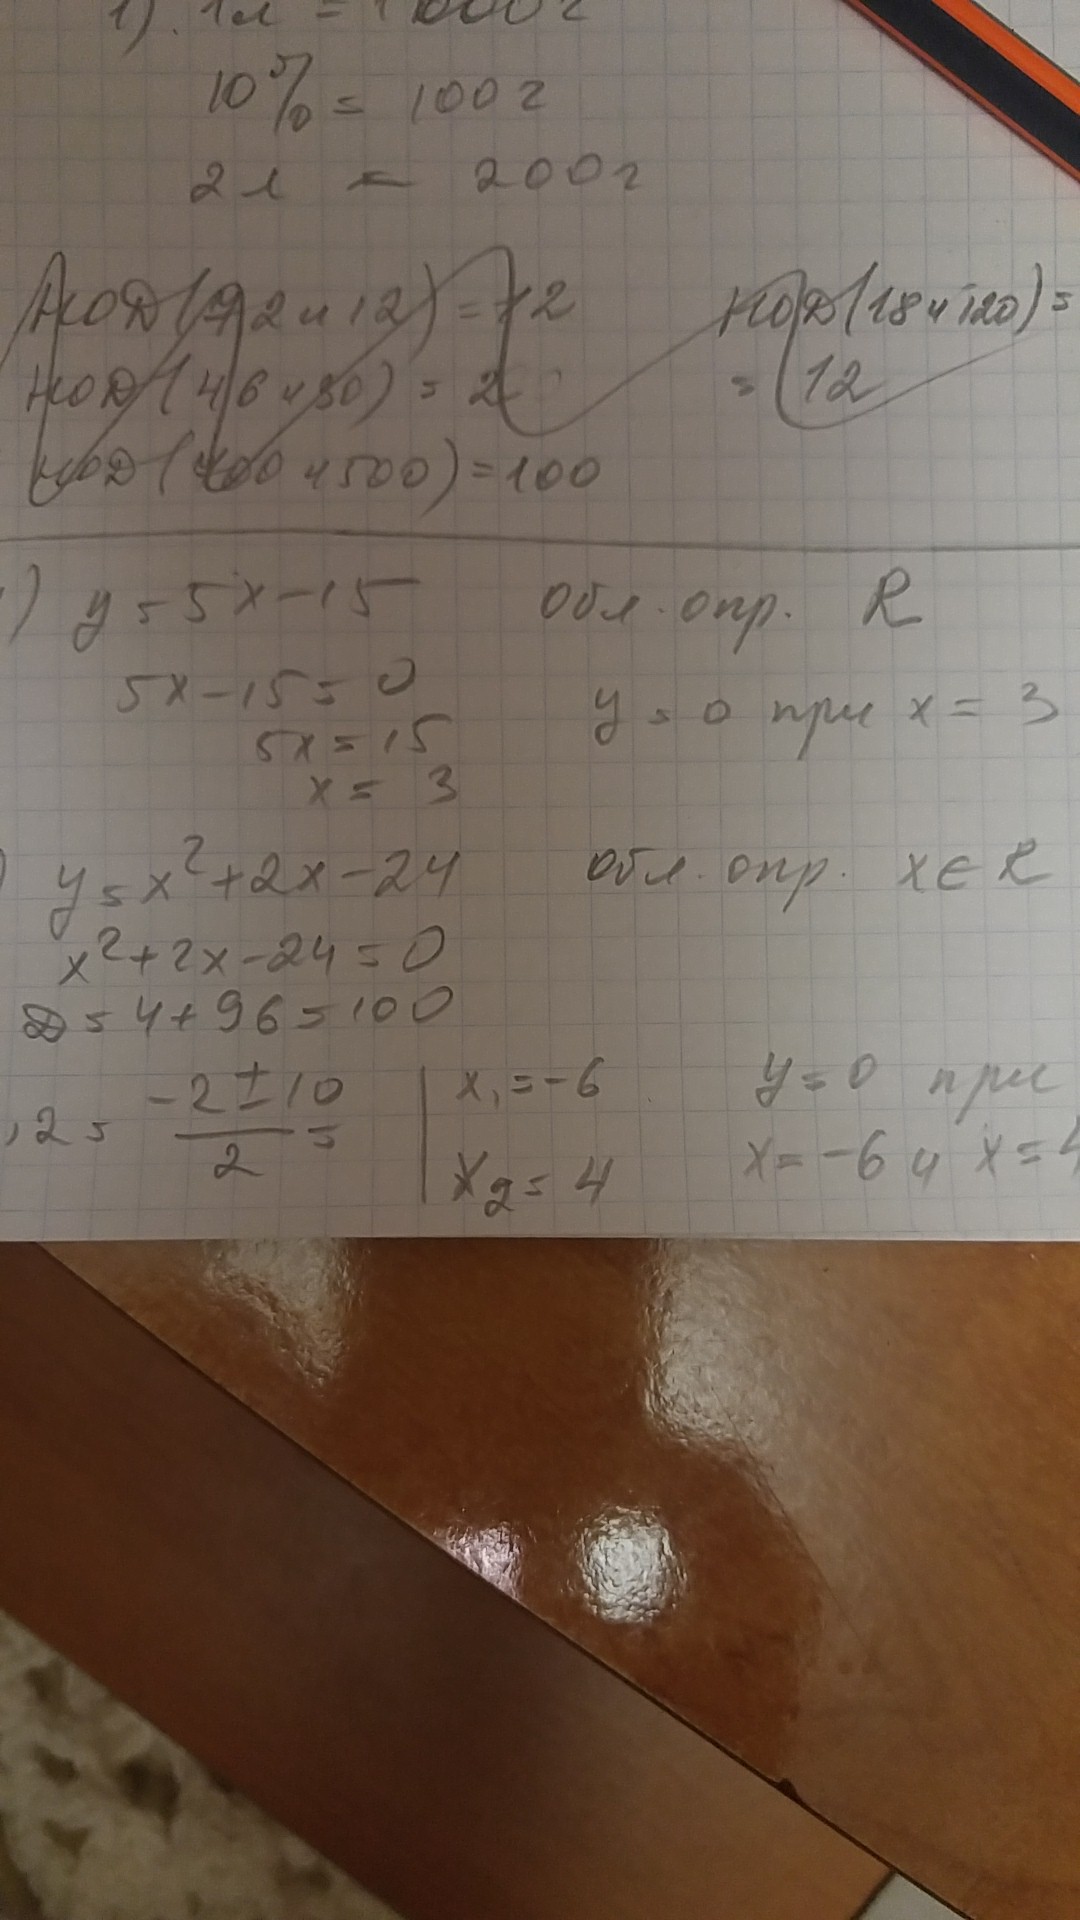 1). 1л = 1000г
10% = 100г
2л = 200г
НОД(72 и 12) = 12
НОД(18 и 120) =
НОД(46 и 30) = 2
= 12
НОД(400 и 500) = 100
) y = 5x - 15 Обл. опр. R
5x - 15 = 0
5x = 15
y = 0 при x = 3
x = 3
) y = x² + 2x - 24 Обл. опр. x ∈ R
x² + 2x - 24 = 0
D = 4 + 96 = 100
,2 = (-2 ± 10)/2 = | x₁ = -6
y = 0 при
x₂ = 4
x = -6 и x = 4